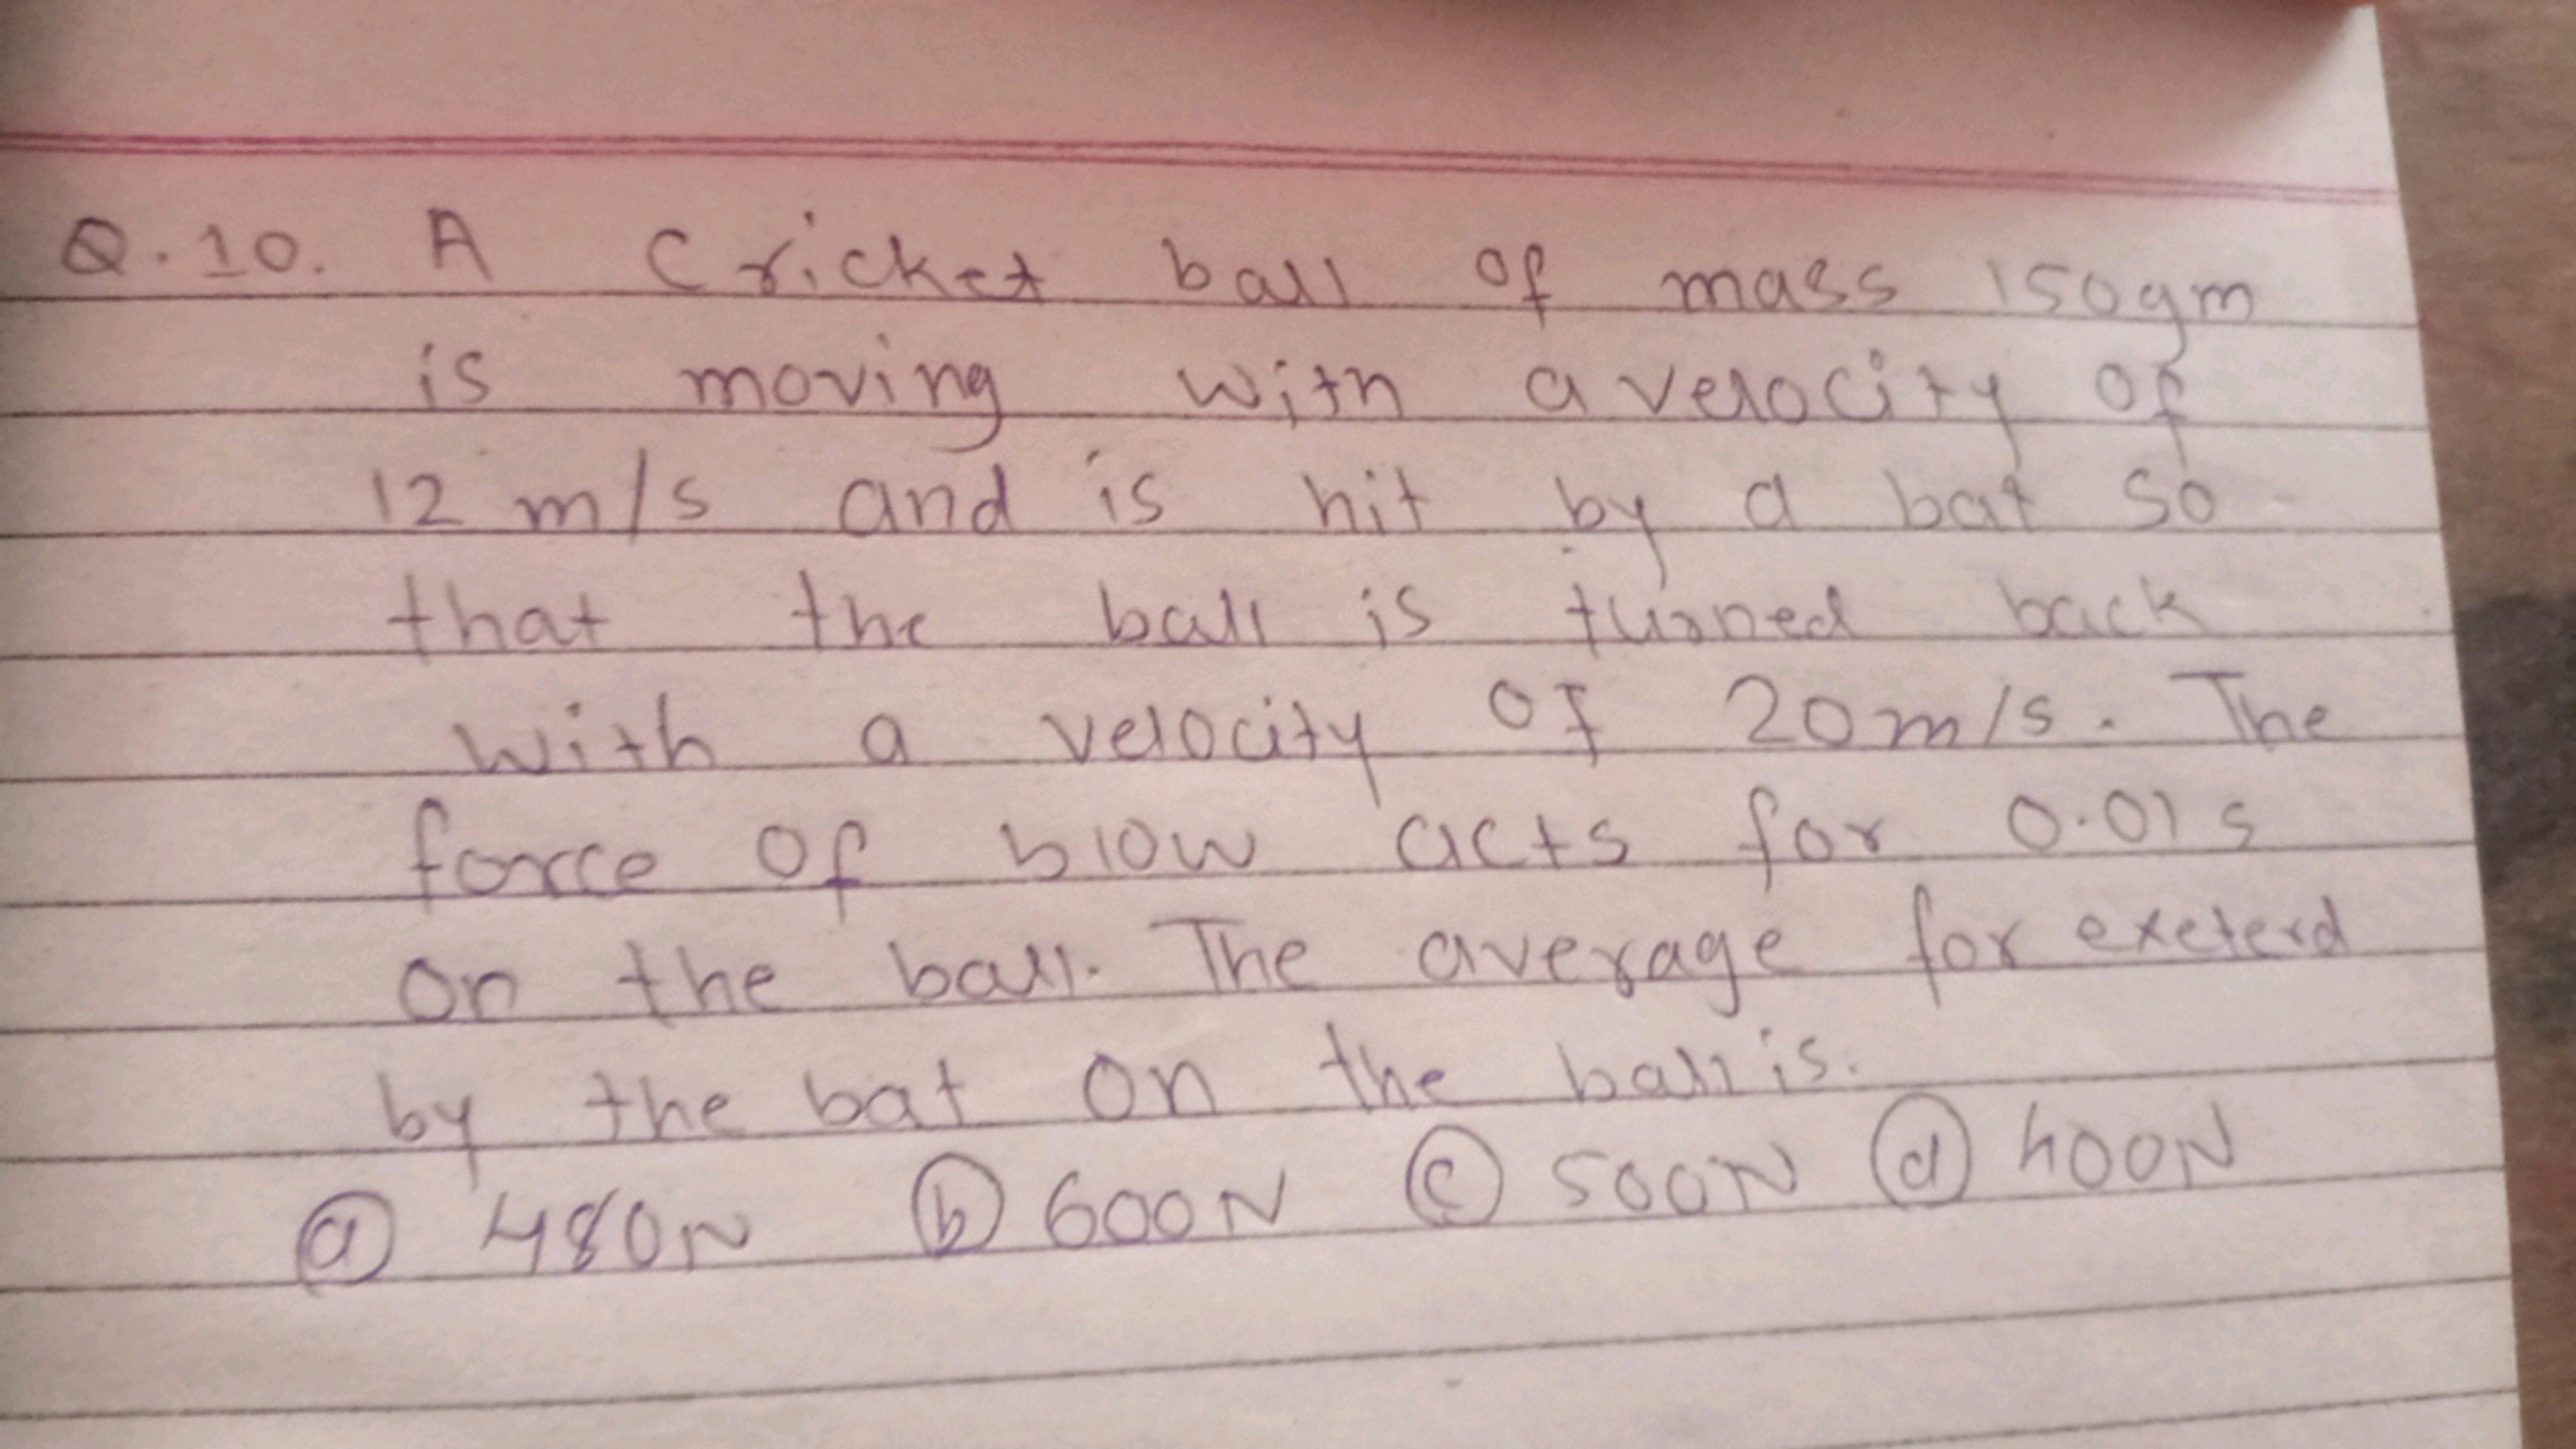 Q.10. A Cricket ball of mass 150gm
is moving with a velocity of
12 m/s and is hit by a bat so
that the ball is turned back
with a velocity of 20m/s. The
force of blow acts for 0.01s
on the ball. The average for exeterd
by the bat on the ball is.
(a) 480N (b) 600N (c) 500N (d) 400N